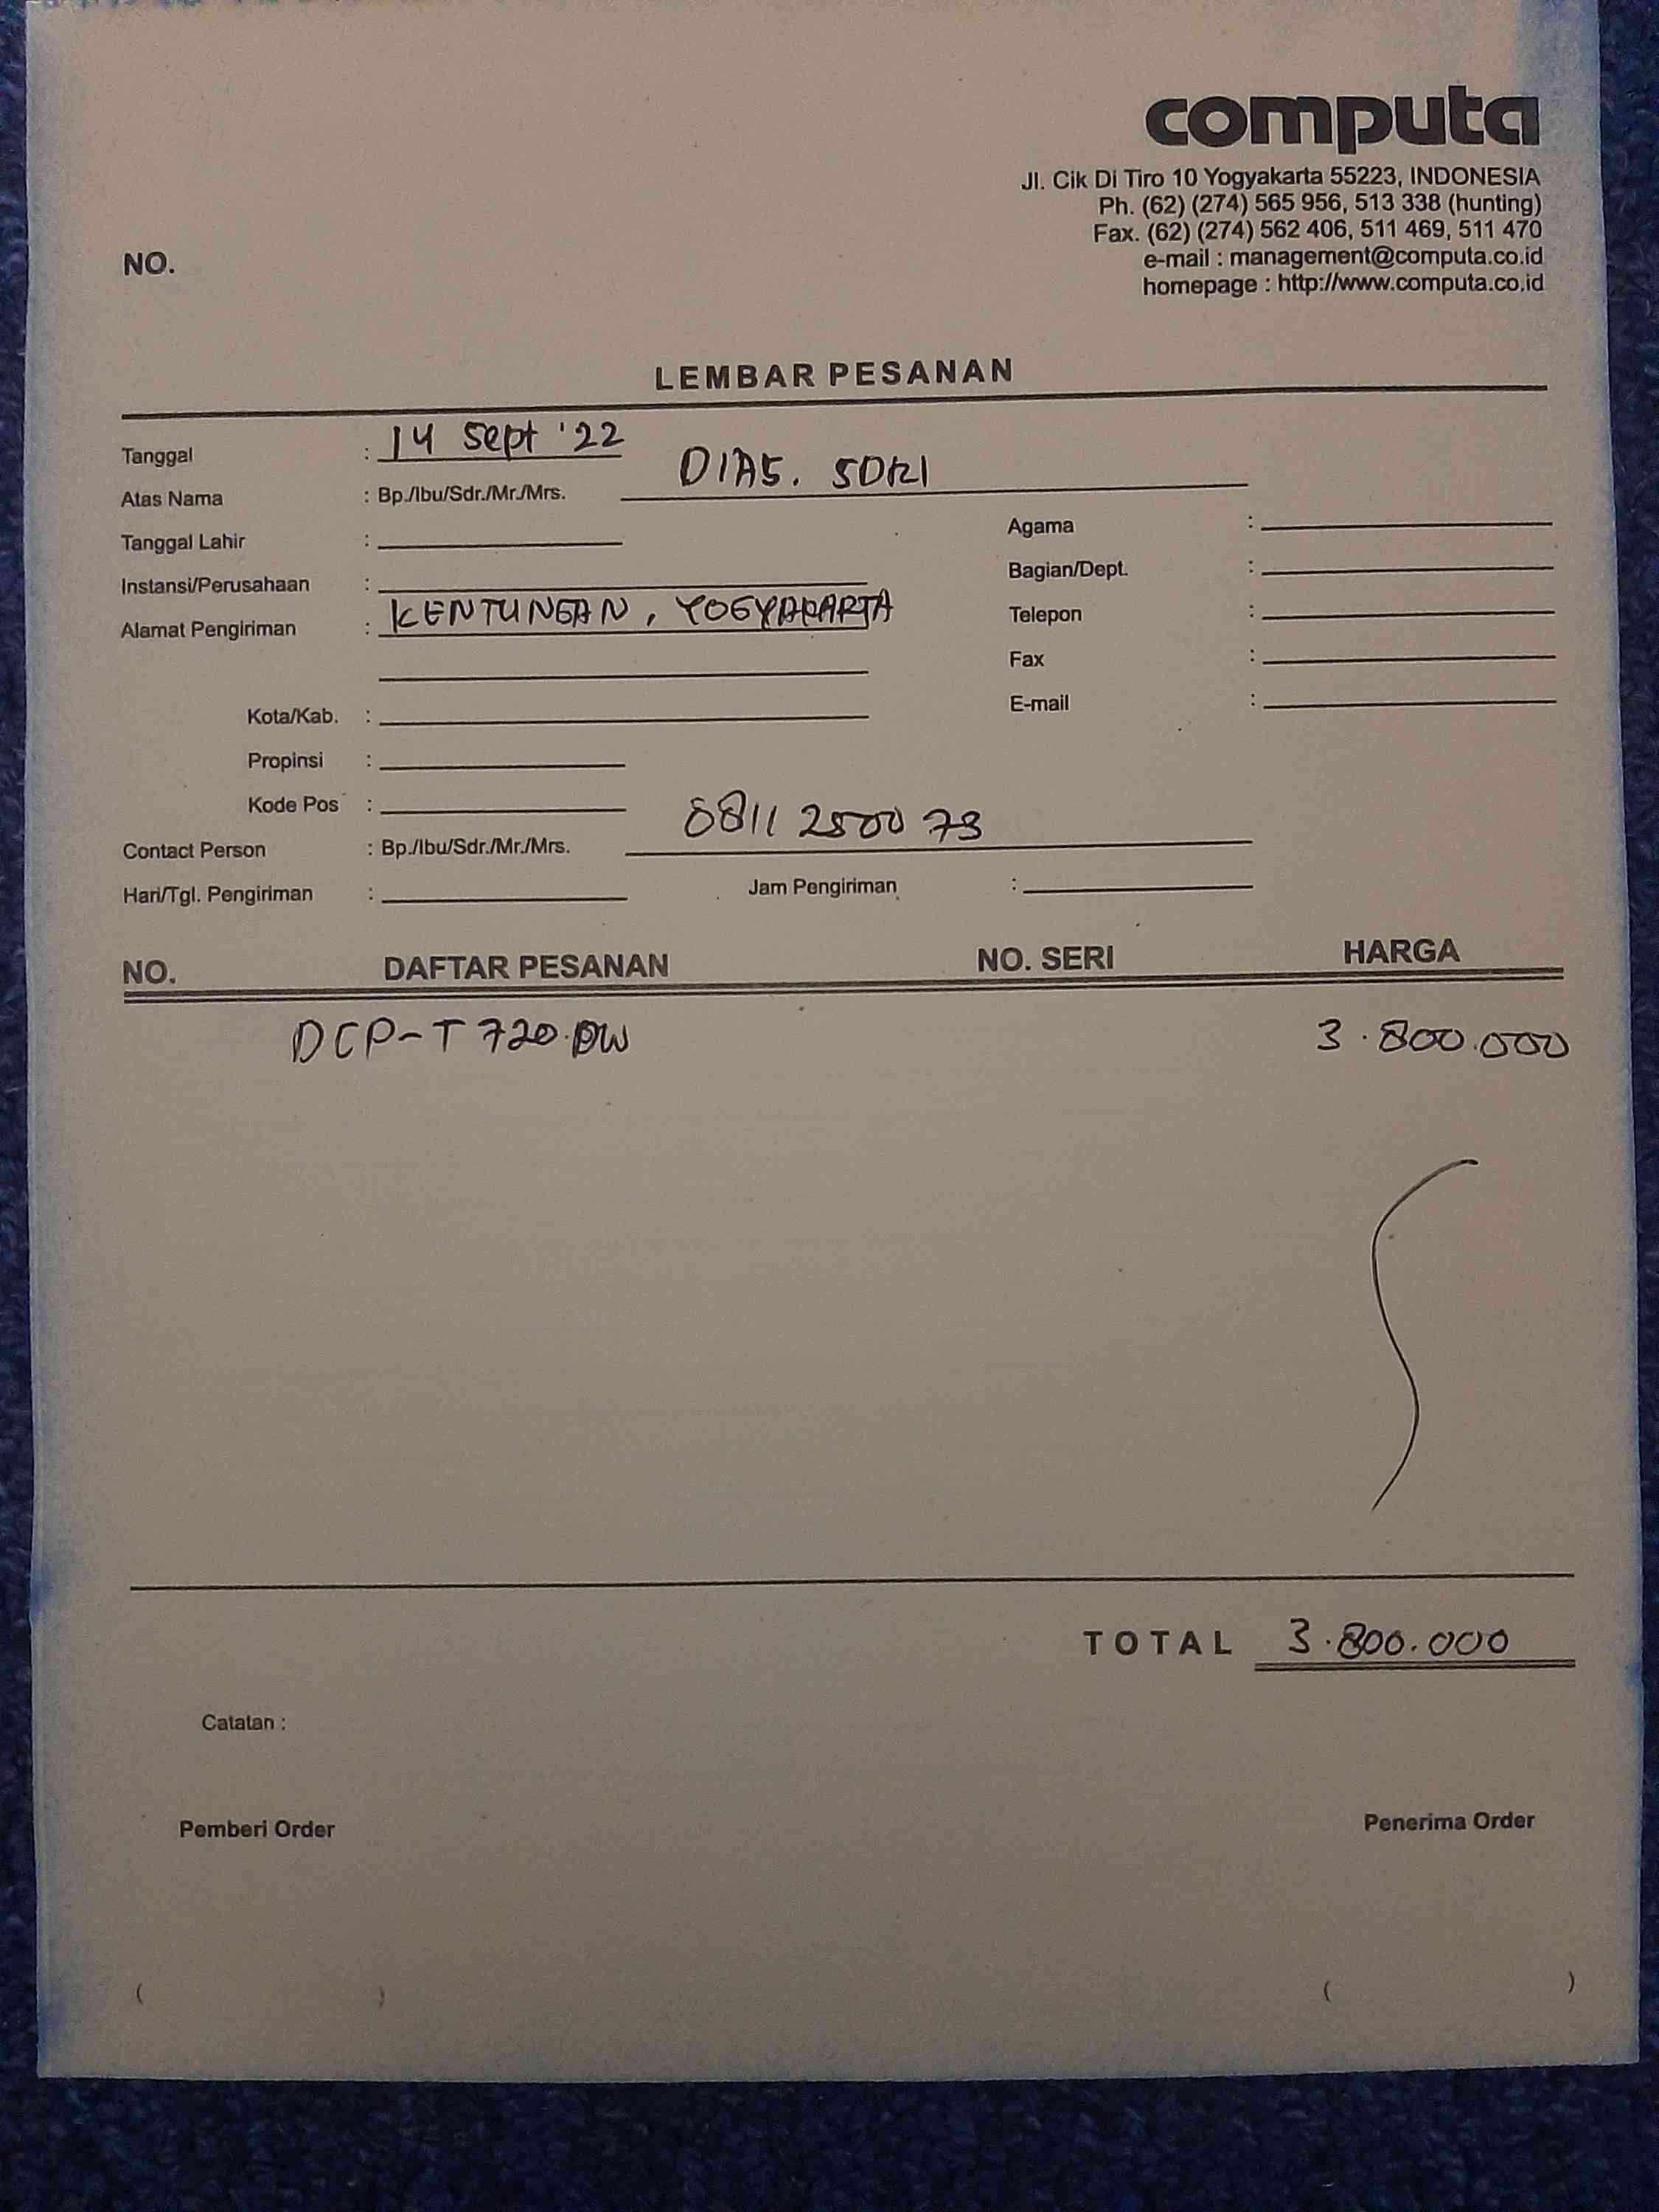 computa
Jl. Cik Di Tiro 10 Yogyakarta 55223, INDONESIA
Ph. (62) (274) 565 956, 513 338 (hunting)
Fax. (62) (274) 562 406, 511 469, 511 470
e-mail : management@computa.co.id
homepage : http://www.computa.co.id
NO.
LEMBAR PESANAN
Tanggal : 14 Sept '22
Atas Nama : Bp./Ibu/Sdr./Mr./Mrs. DIAS. SDRI
Tanggal Lahir :
Agama :
Instansi/Perusahaan :
Bagian/Dept. :
Alamat Pengiriman : KENTUNGAN, YOGYAKARTA
Telepon :
Fax :
Kota/Kab. :
E-mail :
Propinsi :
Kode Pos :
Contact Person : Bp./Ibu/Sdr./Mr./Mrs. 0811 2500 73
Hari/Tgl. Pengiriman : Jam Pengiriman :
NO. DAFTAR PESANAN NO. SERI HARGA
DCP-T 720.DW 3.800.000
TOTAL 3.800.000
Catatan :
Pemberi Order Penerima Order
( ) ( )